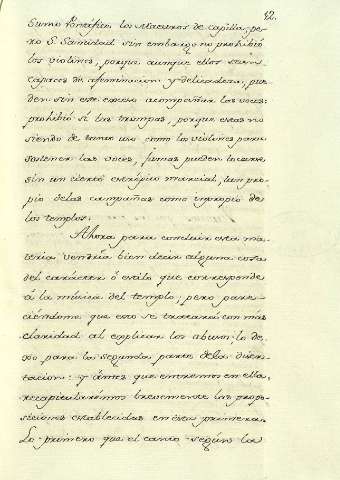 12.
Sumo Pontifice los Maestros de Capilla; pe-
ro S. Santidad sin embargo no prohibió
los violines, porque aunque ellos sean
capaces de afeminacion y delicadeza, pue-
den sin este exceso acompañar las voces:
prohibió sí las trompas, porque estas no
siendo de tanto uso como los violines para
sostener las voces, jamas pueden tocarse
sin un cierto estrépito marcial, tan pro-
pio delas campañas como impropio de
los templos.
Ahora para concluir esta ma-
teria vendria bien decir alguna cosa
del carácter ó estilo que corresponde
á la música del templo; pero pare-
ciéndome que esto se tratará con más
claridad al explicar los abusos lo de-
xo para la segunda parte dela diser-
tacion: y ántes que entremos en ella,
recapitularémos brevemente las propo-
siciones establecidas en esta primera.
Lo primero que el canto segun la